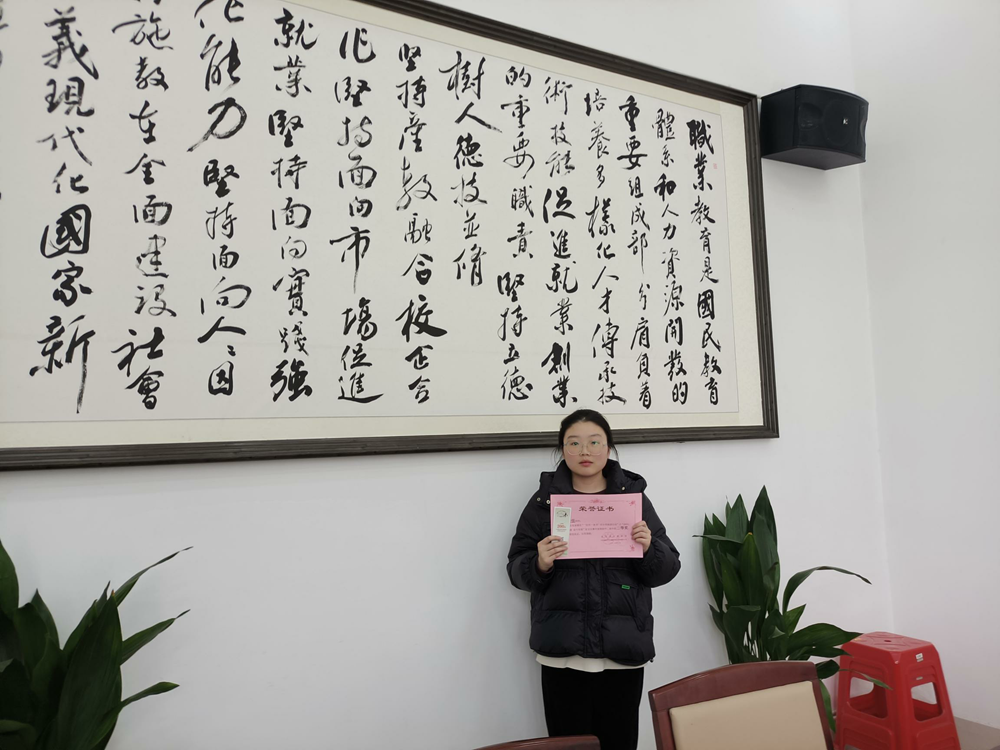 職業教育是國民教育
體系和人力資源開發的
重要組成部分肩負着
培養多樣化人才傳承技
術技能促進就業創業
的重要職責堅持立德
樹人德技並脩
堅持産教融合校企合
作堅持面向市場促進
就業堅持面向實踐強
化能力堅持面向人々因
施教在全面建設社會
義現代化國家新
荣誉证书